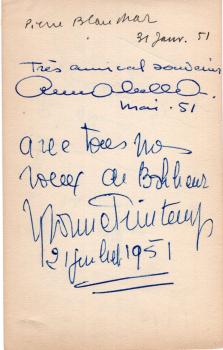 Pierre Blanchar
31 Janv. 51
Très amical souvenir
Mai. 51
avec tous nos
voeux de Bonheur
Yvonne Printemps
21 juillet 1951